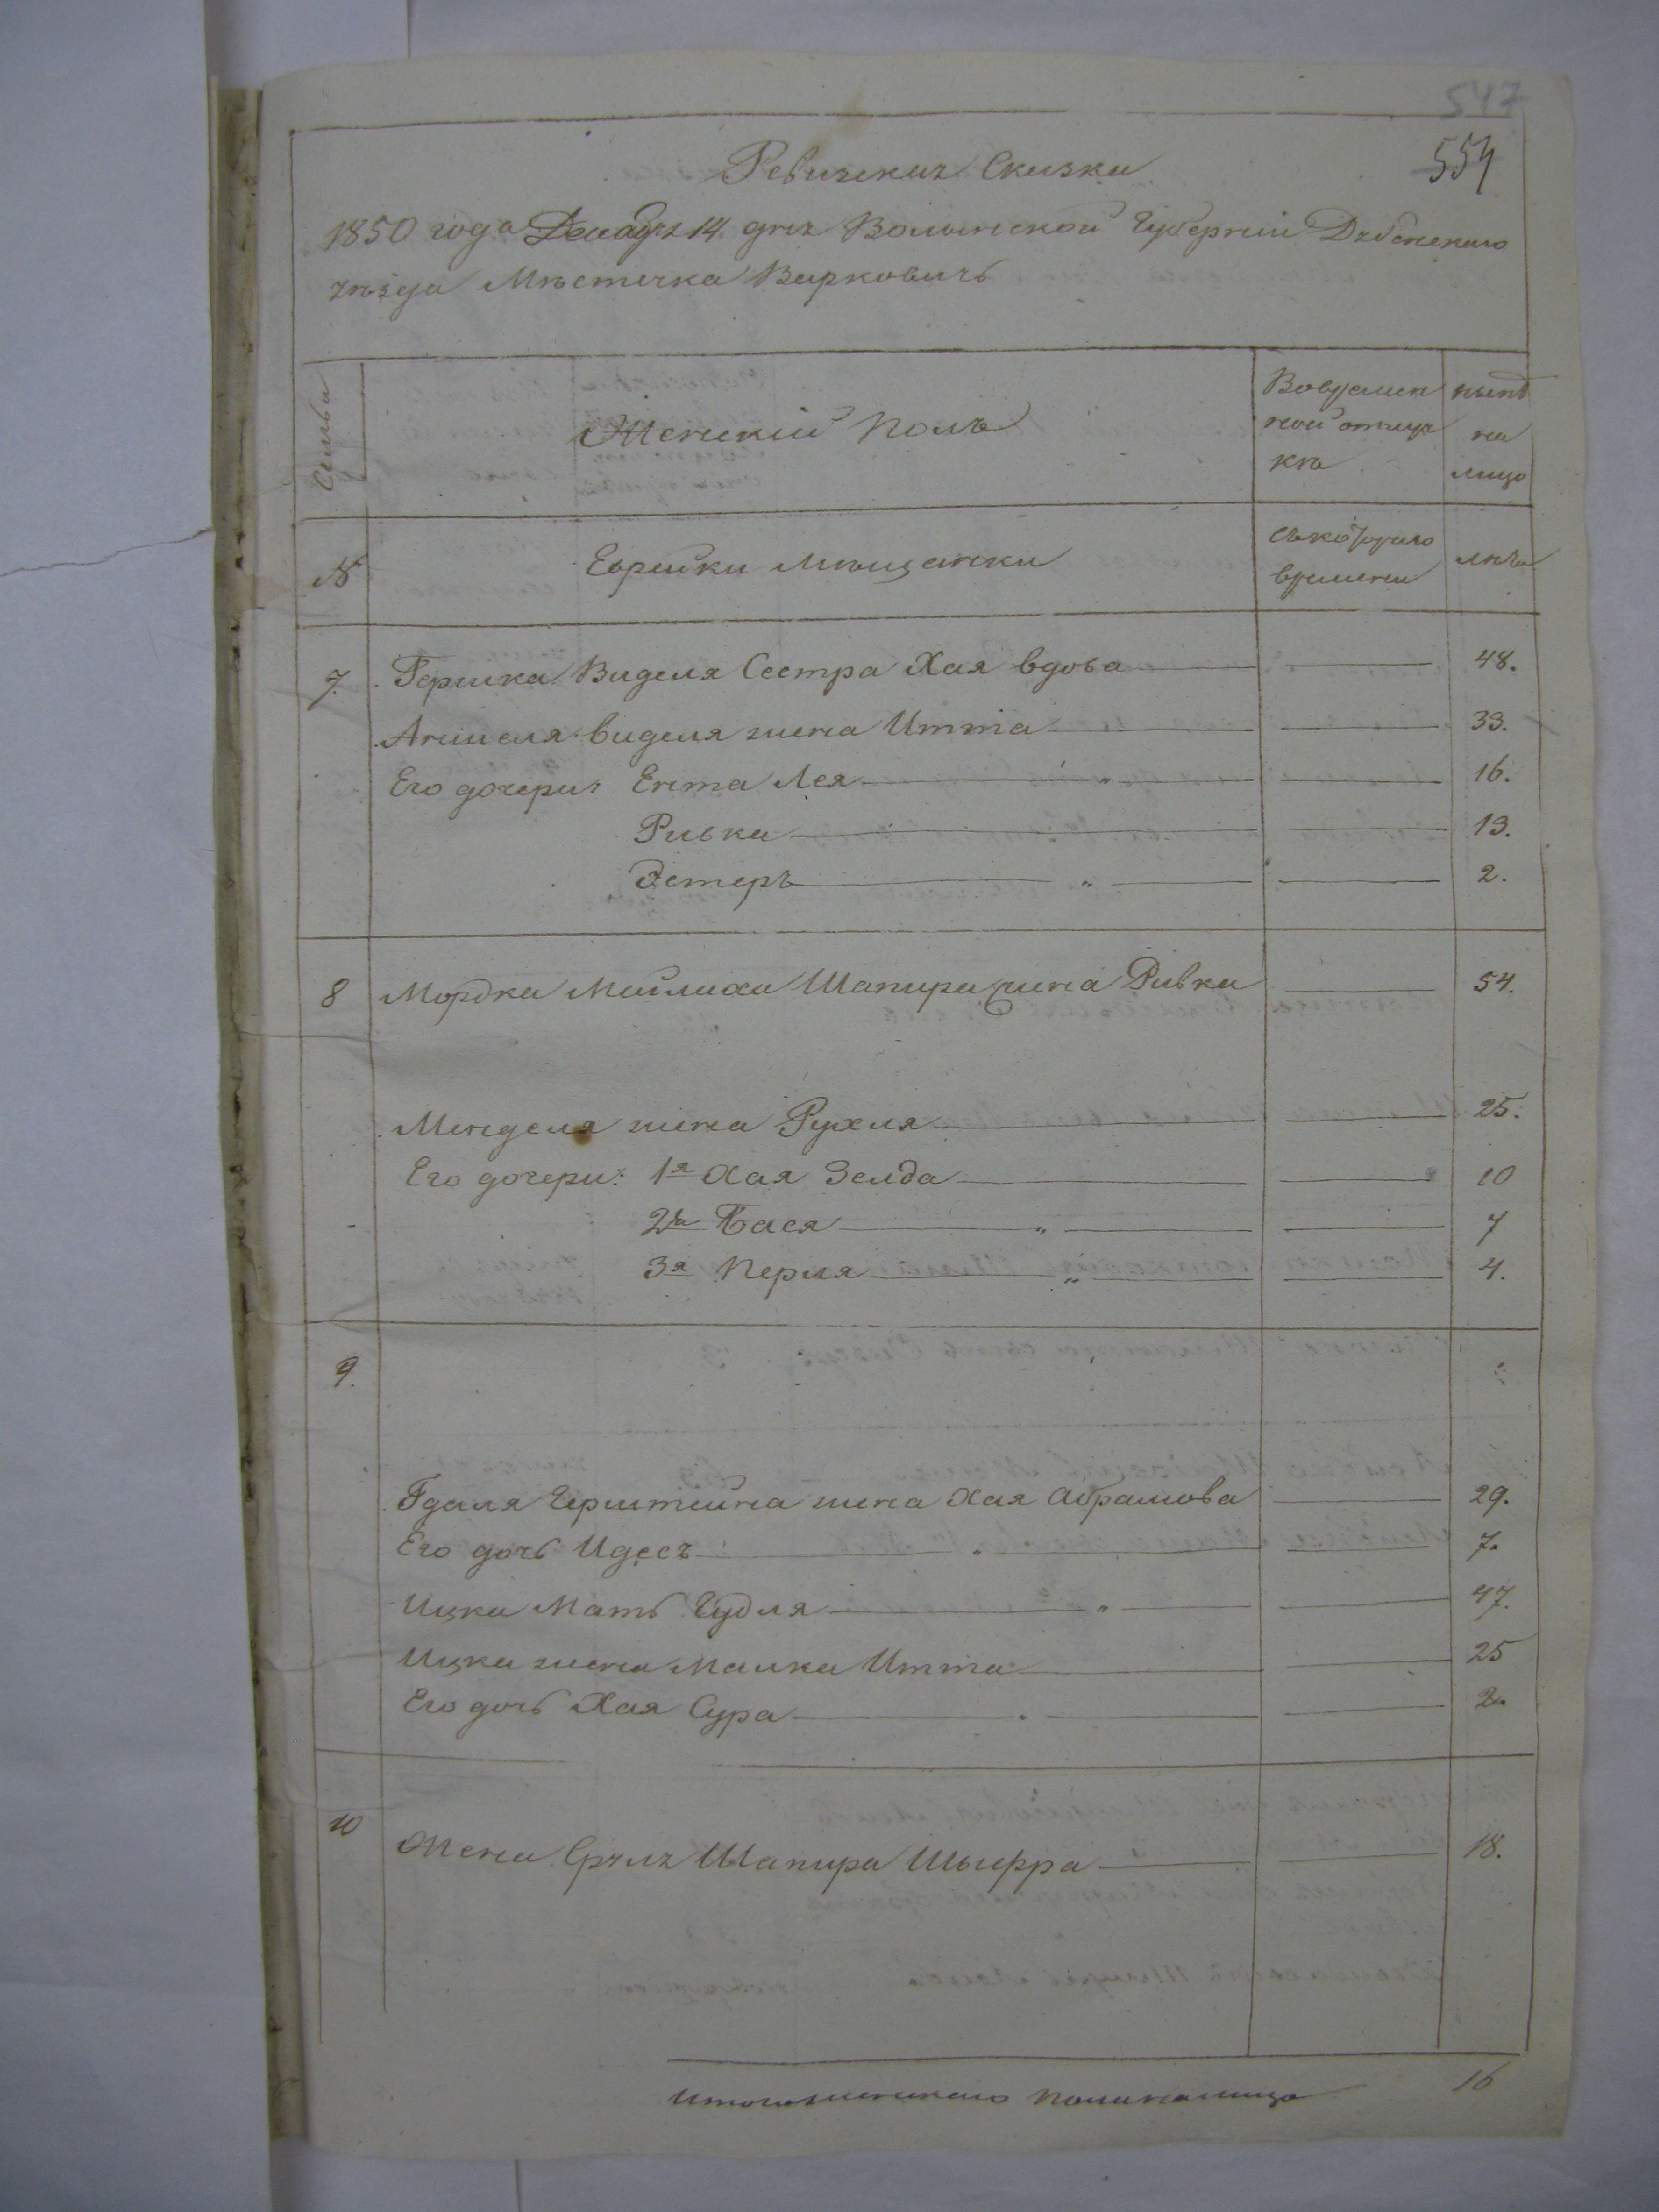 547
554
Ревизская Сказка
1850 года Декабря 14 дня Волынской Губернии Дубенскаго
уѣзда Мѣстечка Варковичъ
Семьи
Женский Полъ
Вовремен
ной отлуч
кѣ
нынѣ
на
лицо
№
Еврейки мѣщанки
Съкотораго
времени
лѣта
7. Гершка Виделя Сестра Хая вдова 48.
Аншеля Виделя жена Итта 33.
Его дочери: Ента Лея " 16.
Ривка 13.
Эстеръ " 2.
8 Мордка Майлаха Шапира жена Ривка 54.
Менделя жена Рухля 25.
Его дочери: 1я Хая Зелда 10
2я Бася " 7
3я Перля " 4.
9.
Гдаля Герштейна жена Хая Абрамова 29.
Его дочь Идесъ " 7.
Ицка Мать Гудля " 47.
Ицка жена Малка Итта 25
Его дочь Хая Сура " 2.
10
Жена Сруля Шапира Шыфра 18.
Итого женскаго пола на лицо 16